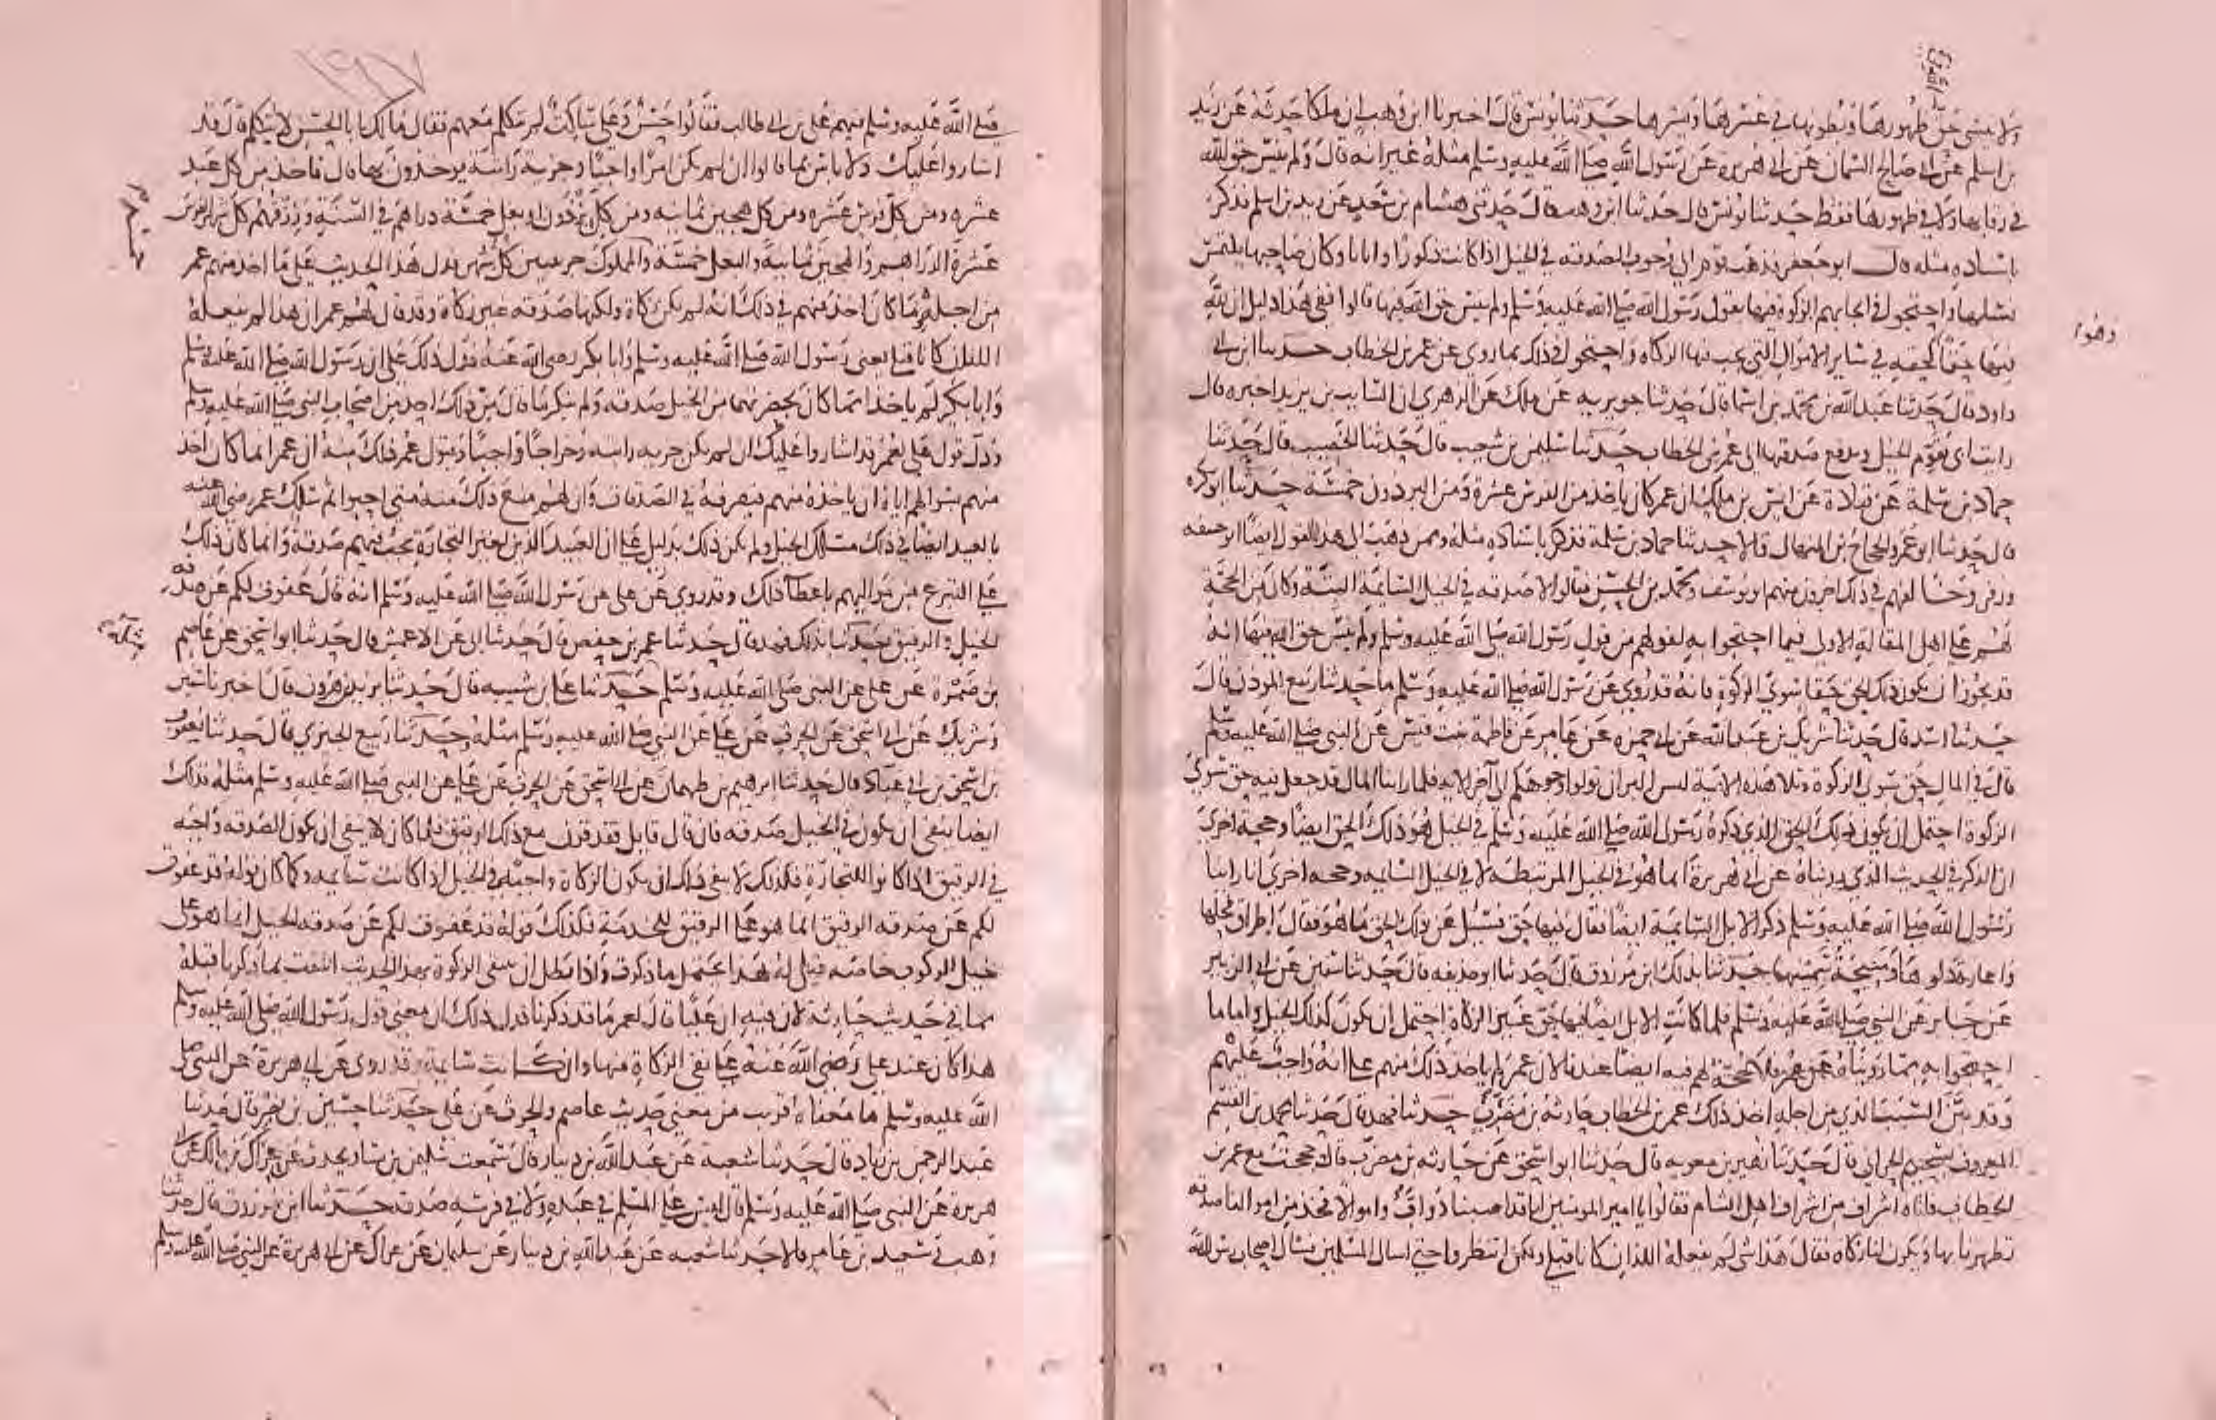 ولا ينسى حق ظهورها وبطونها في عسرها ويسرها حدثنا يونس قال اخبرنا ابن وهب ان ملكا حدثه عن زيد
بن اسلم عن ابي صالح السمان عن ابي هريرة عن رسول الله صلى الله عليه وسلم مثله غير انه قال ولم ينس حق الله
في رقابها ولا في ظهورها فقط حدثنا يونس قال حدثنا ابن وهب قال حدثني هشام بن سعد عن زيد بن اسلم فذكر
باسناده مثله قال ابو جعفر فذهب قوم الى وجوب الصدقه في الخيل اذا كانت ذكورا واناثا وكان صاحبها يلتمس
نسلها واحتجوا في ايجابهم الزكوة فيها بقول رسول الله صلى الله عليه وسلم ولم ينس حق الله فيها قالوا ففي هذا دليل ان لله
فيها حقا كحقه في سائر الاموال التي يجب فيها الزكاه واحتجوا في ذلك بما روي عن عمر بن الخطاب حدثنا ابن ابي
داود قال حدثنا عبد الله بن محمد بن اسما قال حدثنا جويريه عن ملك عن الزهري ان السايب بن يزيد اخبره قال
رايت ابي يقوم الخيل ويدفع صدقتها الى عمر بن الخطاب حدثنا سليمن بن شعيب قال حدثنا الخصيب قال حدثنا
حماد بن سلمة عن قتادة عن انس بن ملك ان عمر كان ياخذ من الفرس عشرة ومن البرذون خمسة حدثنا ابو بكره
قال حدثنا ابو عمر والحجاج بن المنهال قالا حدثنا حماد بن سلمة فذكر باسناده مثله وممن ذهب الى هذا القول ايضا ابو حنيفه
وزفر وخالفهم في ذلك اخرون منهم ابو يوسف ومحمد بن الحسن فقالوا لا صدقه في الخيل السائمة البتة وكان من الحجة
لهم على اهل المقالة الاولى فيما احتجوا به لقولهم من قول رسول الله صلى الله عليه وسلم ولم ينس حق الله فيها انه
قد يجوز ان يكون ذلك الحق حقا سوى الزكوة فانه قد روي عن رسول الله صلى الله عليه وسلم ما حدثنا ربيع المؤذن قال
حدثنا اسد قال حدثنا شريك بن عبد الله عن ابي حمزه عن عامر عن فاطمة بنت قيس عن النبي صلى الله عليه وسلم
قال في المال حق سوى الزكوة وتلا هذه الاية ليس البر ان تولوا وجوهكم الى آخر الايه فلما راينا المال قد جعل فيه حق سوى
الزكوة احتمل ان يكون ذلك الحق الذي ذكره رسول الله صلى الله عليه وسلم في الخيل هو ذلك الحق ايضا وحجة اخرى
ان الذكر في الحديث الذي رويناه عن ابي هريرة انما هو في الخيل المرتبطة لا في الخيل السايمه وحجه اخرى انا راينا
رسول الله صلى الله عليه وسلم ذكر الابل السائمة ايضا فقال فيها حق فسئل عن ذلك الحق ما هو فقال اطراق فحلها
واعارة دلوها ومنيحة سمينها حدثنا بذلك ابن مرزوق قال حدثنا ابو حذيفه قال حدثنا سفين عن ابي الزبير
عن جابر عن النبي صلى الله عليه وسلم فلما كانت الابل ايضا فيها حق غير الزكاة احتمل ان يكون كذلك الخيل واما ما
احتجوا به مما رويناه عن عمر فلا حجة لهم فيه ايضا عندنا لان عمر لم ياخذ ذلك منهم على انه واجب عليهم
وقد بين السبب الذي من اجله اخذ ذلك عمر بن الخطاب حارثة بن مضرب حدثنا فهد قال حدثنا محمد بن القسم
المعروف بسحيم الحراني قال حدثنا زهير بن معويه قال حدثنا ابو اسحق عن حارثه بن مضرب قال حججت مع عمر بن
الخطاب فاتاه اشراف من اشراف اهل الشام فقالوا يا امير المومنين انا قد اصبنا دواب واموالا فخذ من اموالنا صدقه
تطهرنا بها وتكون لنا زكاه فقال هذا شي لم يفعله اللذان كانا قبلي ولكن انتظروا حتى اسال المسلمين فسال اصحاب رسول الله
وهوا
١٩٧
صلى الله عليه وسلم فيهم علي بن ابي طالب فقالوا حسن وعلي ساكت لم يتكلم معهم فقال مالك يا ابا الحسن لا تتكلم قال قد
اشاروا عليك ولا باس بما قالوا ان لم يكن امرا واجبا وجزية راتبة يوخذون بها قال فاخذ من كل عبد
عشره ومن كل فرس عشره ومن كل هجين ثمانيه ومن كل برذون او بغل خمسة دراهم في السنة ورزقهم كل شهر الفرس
عشرة الدراهم والهجين ثمانية والبغل خمسة والمملوك جريبين كل شهر فدل هذا الحديث على ما اخذ منهم عمر
من اجله ما كان اخذ منهم في ذلك انه لم يكن زكاة ولكنها صدقه غير زكاة وقد قال لهم عمر ان هذا لم يفعله
اللذان كانا قبلي يعني رسول الله صلى الله عليه وسلم وابا بكر رضي الله عنه فدل ذلك على ان رسول الله صلى الله عليه وسلم
وابا بكر لم ياخذا مما كان بحضرتهما من الخيل صدقه ولم ينكر ما قال من ذلك احد من اصحاب النبي صلى الله عليه وسلم
ودل قول علي لعمر قد اشاروا عليك ان لم يكن جزيه راتبه وخراجا واجبا وقبول عمر ذلك منه ان عمر انما كان اخذ
منهم بسوالهم اياه ان ياخذه منهم فيصرفه في الصدقات وان لهم منع ذلك منه متى احبوا ثم سلك عمر رضي الله عنه
بالعبيد ايضا في ذلك مسلك الخيل ولم يكن ذلك بدليل على ان العبيد الذين لغير التجارة يجب فيهم صدقة وانما كان ذلك
على التبرع من مواليهم باعطا ذلك وقد روي عن علي عن رسول الله صلى الله عليه وسلم انه قال عفوت لكم عن صدقه
الخيل والرقيق حدثنا بذلك فهد قال حدثنا عمر بن حفص قال حدثنا ابي عن الاعمش قال حدثنا ابو اسحق عن عاصم
بن ضمرة عن علي عن النبي صلى الله عليه وسلم حدثنا علي بن شيبه قال حدثنا يزيد بن هرون قال اخبرنا سفين
وشريك عن ابي اسحق عن الحرث عن علي عن النبي صلى الله عليه وسلم مثله حدثنا ربيع الجيزي قال حدثنا يعقوب
بن اسحق بن ابي عباد قال حدثنا ابرهيم بن طهمان عن ابي اسحق عن الحرث عن علي عن النبي صلى الله عليه وسلم مثله فذلك
ايضا ينفي ان يكون في الخيل صدقه فان قال قايل فقد قرن مع ذلك الرقيق فلما كان لا ينفي ان يكون الصدقه واجبه
في الرقيق اذا كانوا للتجارة فكذلك لا ينفي ذلك ان يكون الزكاة واجبة في الخيل اذا كانت سايمه وكما كان قوله قد عفوت
لكم عن صدقه الرقيق انما هو على الرقيق للخدمة فكذلك قوله قد عفوت لكم عن صدقه الخيل انما هو على
خيل الركوب خاصه قيل له هذا يحتمل ما ذكرت واذا بطل ان ينتفي الزكوة بهذا الحديث انتفت بما ذكرنا قبله
مما في حديث حارثه لان فيه ان عليا قال لعمر ما قد ذكرنا فدل ذلك ان معنى قول رسول الله صلى الله عليه وسلم
هذا كان عند علي رضي الله عنه على نفي الزكاة منها وان كانت سائمة وقد روي عن ابي هريرة عن النبي صلى
الله عليه وسلم ما معناه اقرب من معنى حديث عاصم والحرث عن علي حدثنا حسين بن نصر قال حدثنا
عبد الرحمن بن زياد قال حدثنا شعبة عن عبد الله بن دينار قال سمعت سليمن بن يسار يحدث عن عراك بن مالك عن ابي
هريرة عن النبي صلى الله عليه وسلم قال ليس على المسلم في عبده ولا في فرسه صدقه حدثنا ابن مرزوق قال حدثنا
وهب وسعيد بن عامر قالا حدثنا شعبه عن عبد الله بن دينار عن سليمان عن عراك عن ابي هريرة عن النبي صلى الله عليه وسلم